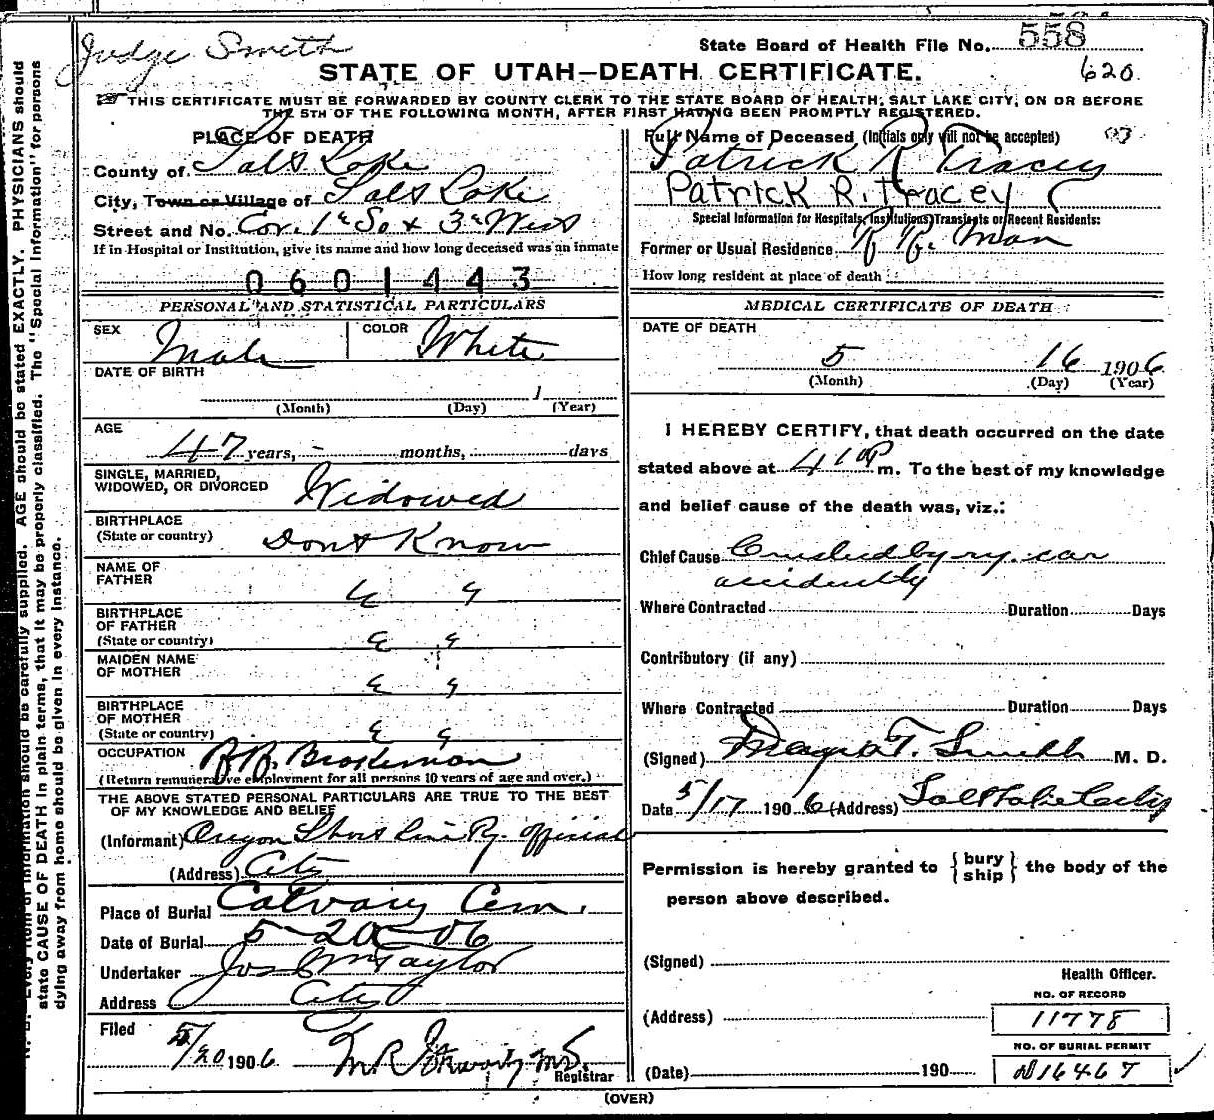 Judge Smith
State Board of Health File No. 558
STATE OF UTAH—DEATH CERTIFICATE.
620
THIS CERTIFICATE MUST BE FORWARDED BY COUNTY CLERK TO THE STATE BOARD OF HEALTH, SALT LAKE CITY, ON OR BEFORE
THE 5TH OF THE FOLLOWING MONTH, AFTER FIRST HAVING BEEN PROMPTLY REGISTERED.
PLACE OF DEATH
County of Salt Lake
City, Town or Village of Salt Lake
Street and No. Cor. 1st So & 3d West
If in Hospital or Institution, give its name and how long deceased was an inmate
0601443
PERSONAL AND STATISTICAL PARTICULARS
SEX Male COLOR White
DATE OF BIRTH
1
(Month) (Day) (Year)
AGE
47 years, - months, days
SINGLE, MARRIED,
WIDOWED, OR DIVORCED Widowed
BIRTHPLACE
(State or country) Dont Know
NAME OF
FATHER " "
BIRTHPLACE
OF FATHER
(State or country) " "
MAIDEN NAME
OF MOTHER " "
BIRTHPLACE
OF MOTHER
(State or country) " "
OCCUPATION R.R. Brakeman
(Return remunerative employment for all persons 10 years of age and over.)
THE ABOVE STATED PERSONAL PARTICULARS ARE TRUE TO THE BEST
OF MY KNOWLEDGE AND BELIEF
(Informant) Oregon Short Line Ry. official
(Address) City
Place of Burial Calvary Cem.
Date of Burial 5-20-06
Undertaker Jos Wm Taylor
Address City
Filed
5/20 1906
Registrar
Full Name of Deceased (Initials only will not be accepted)
Patrick R Tracey
Patrick R. Tracey
Special Information for Hospitals, Institutions, Transients or Recent Residents:
Former or Usual Residence R. R. Man
How long resident at place of death
MEDICAL CERTIFICATE OF DEATH
DATE OF DEATH
5 16 1906
(Month) (Day) (Year)
I HEREBY CERTIFY, that death occurred on the date
stated above at 4 10 P m. To the best of my knowledge
and belief cause of the death was, viz.:
Chief Cause Crushed by ry. car
accidently
Where Contracted Duration Days
Contributory (if any)
Where Contracted Duration Days
(Signed) T. Smith M. D.
Date 5/17 1906 (Address) Salt Lake City
Permission is hereby granted to {bury ship} the body of the
person above described.
(Signed)
Health Officer.
NO. OF RECORD
(Address) 11778
NO. OF BURIAL PERMIT
(Date) 190 N16467
(OVER)
N. B. Every item of information should be carefully supplied. AGE should be stated EXACTLY. PHYSICIANS should
state CAUSE OF DEATH in plain terms, that it may be properly classified. The "Special Information" for persons
dying away from home should be given in every instance.